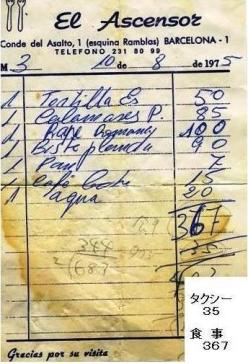 El Ascensor
Conde del Asalto, 1 (esquina Ramblas) BARCELONA - 1
TELEFONO 231 80 99
M 3 10 de 8 de 1975
1 Tortilla Es 50
1 Calamares P. 85
1 Rape Romana 100
1 Biste plancha 90
1 Pan 7
1 Café 15
1 agua 20
367
35
344
683
タクシー
35
食事
367
Gracias por su visita